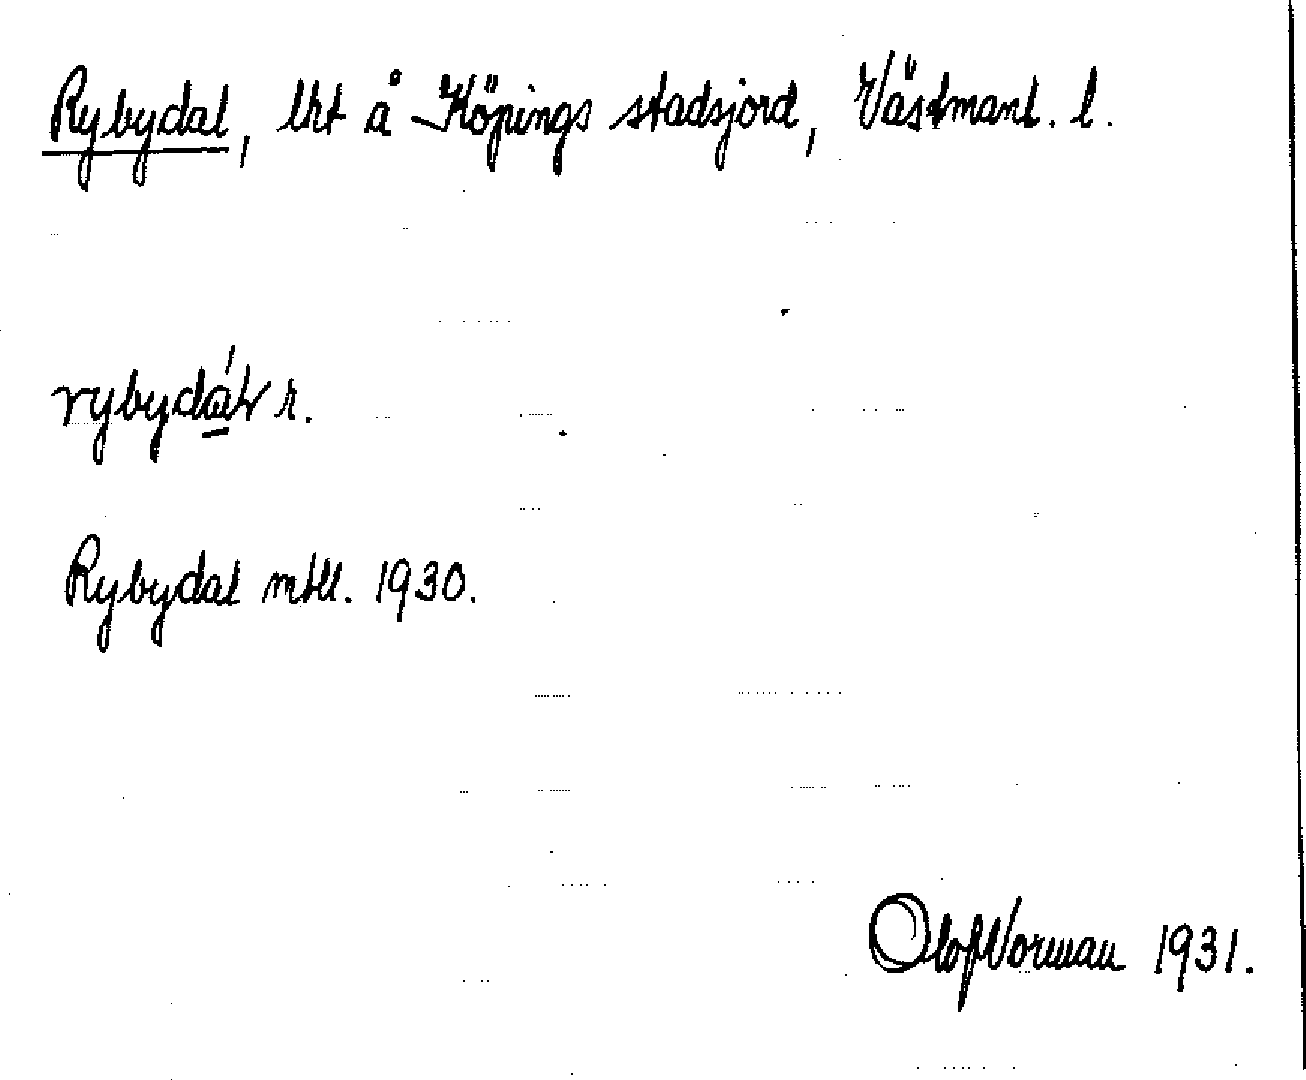 Rybydal, lht å Köpings stadsjord, Västmanl. l.
rybydá̲l r.
Rybydal mtll. 1930.
Olof Norman 1931.